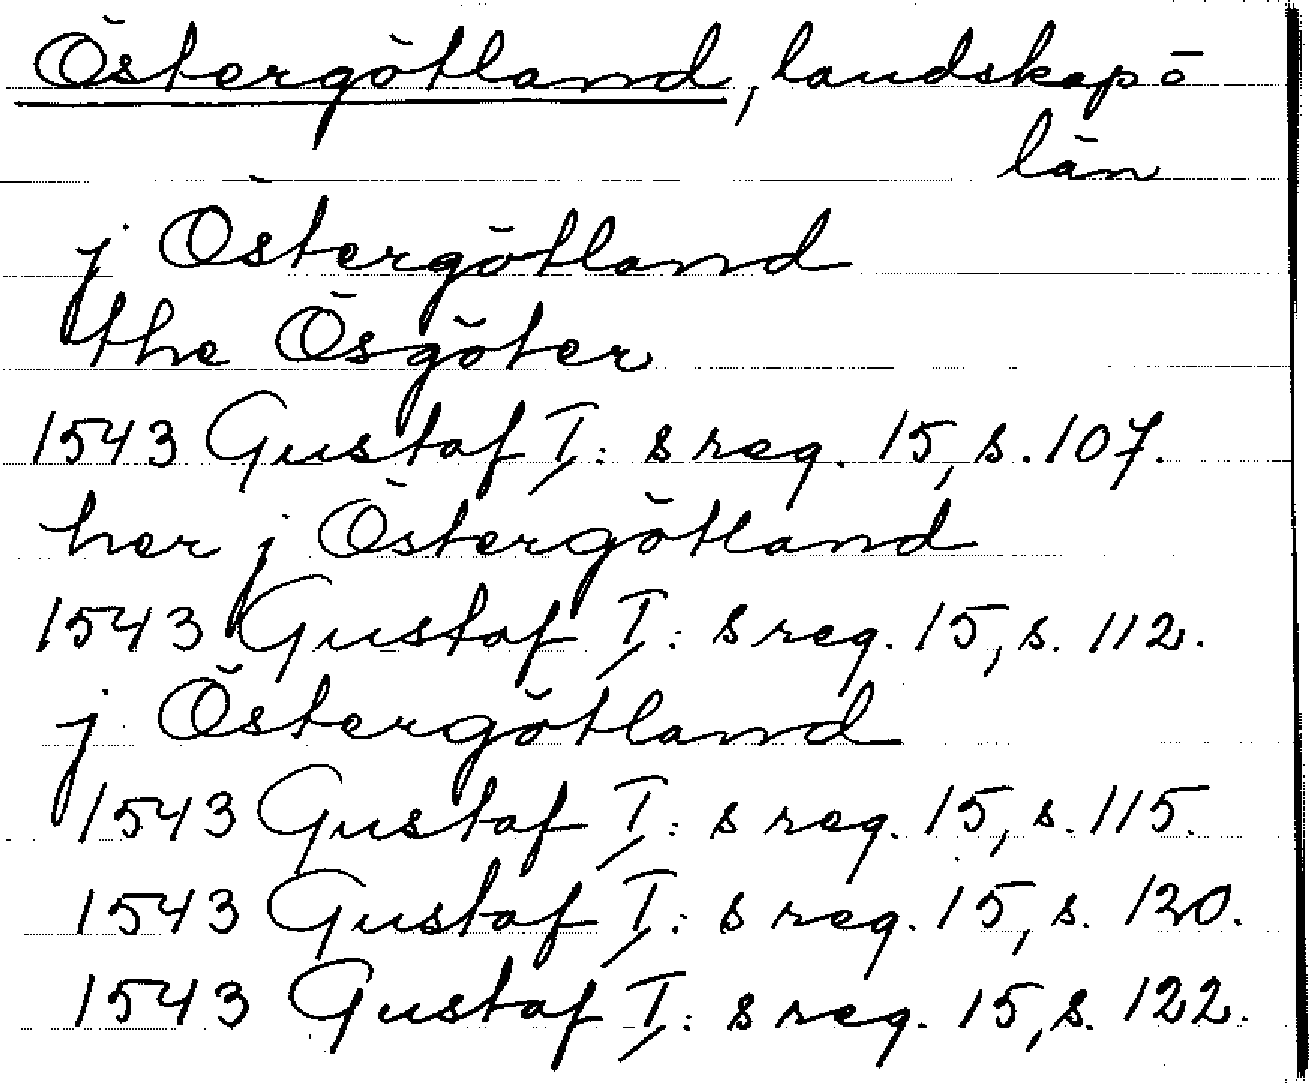 Östergötland, landskap o
län
j Östergötland
the Ösgöter
1543 Gustaf I: s reg. 15, s. 107.
her j Östergötland
1543 Gustaf I: s reg. 15, s. 112.
j Östergötland
1543 Gustaf I: s reg. 15, s. 115.
1543 Gustaf I: s reg. 15, s. 120.
1543 Gustaf I: s reg. 15, s. 122.